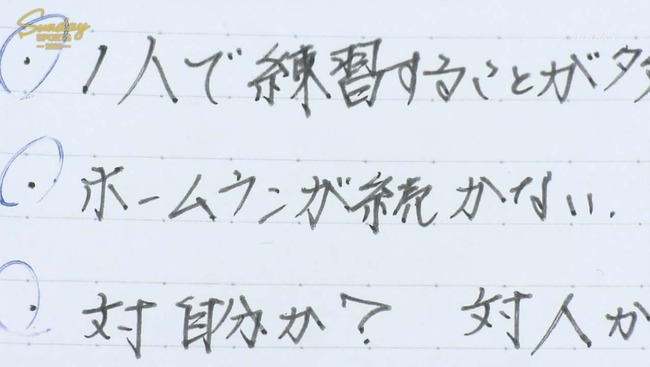 Sunday
SPORTS
・1人で練習することが多
・ホームランが続かない.
・対自分か? 対人か